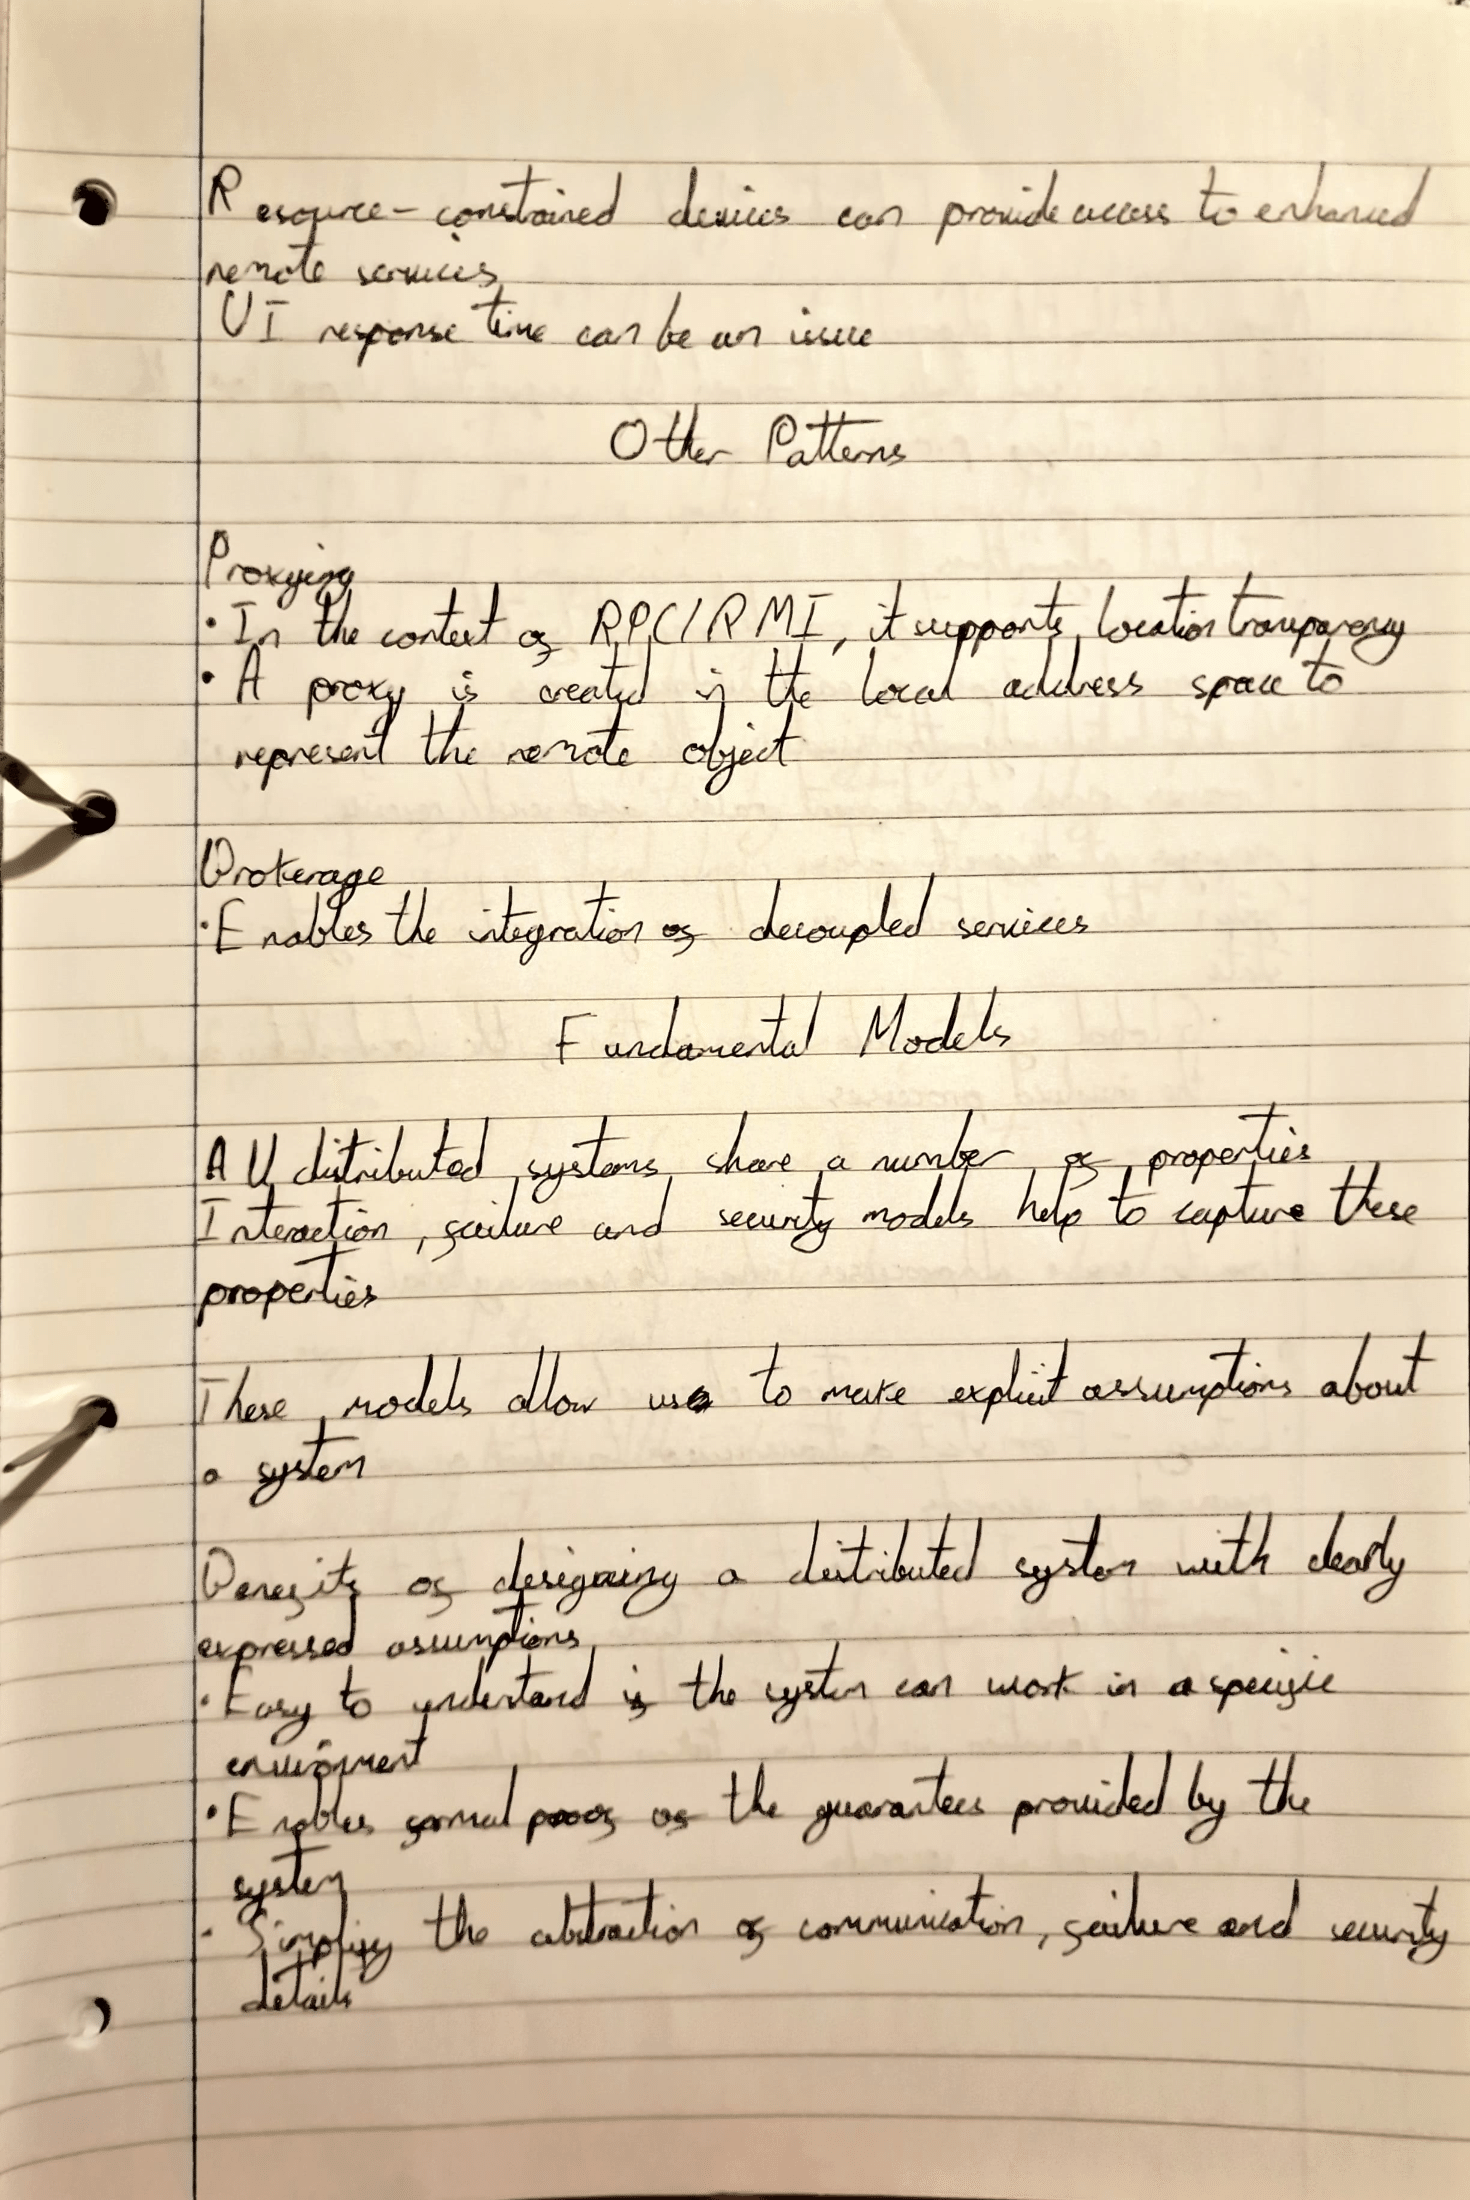 Resource-constrained devices can provide access to enhanced
remote services
UI response time can be an issue
Other Patterns
Proxying
• In the context of RPC/RMI, it supports location transparency
• A proxy is created in the local address space to
represent the remote object
Brokerage
• Enables the integration of decoupled services
Fundamental Models
All distributed systems share a number of properties
Interaction, failure and security models help to capture these
properties
These models allow us to make explicit assumptions about
a system
Benefits of designing a distributed system with clearly
expressed assumptions
• Easy to understand if the system can work in a specific
enviroment
• Enables formal proof of the guarantees provided by the
system
• Simplify the abstraction of communication, failure and security
details